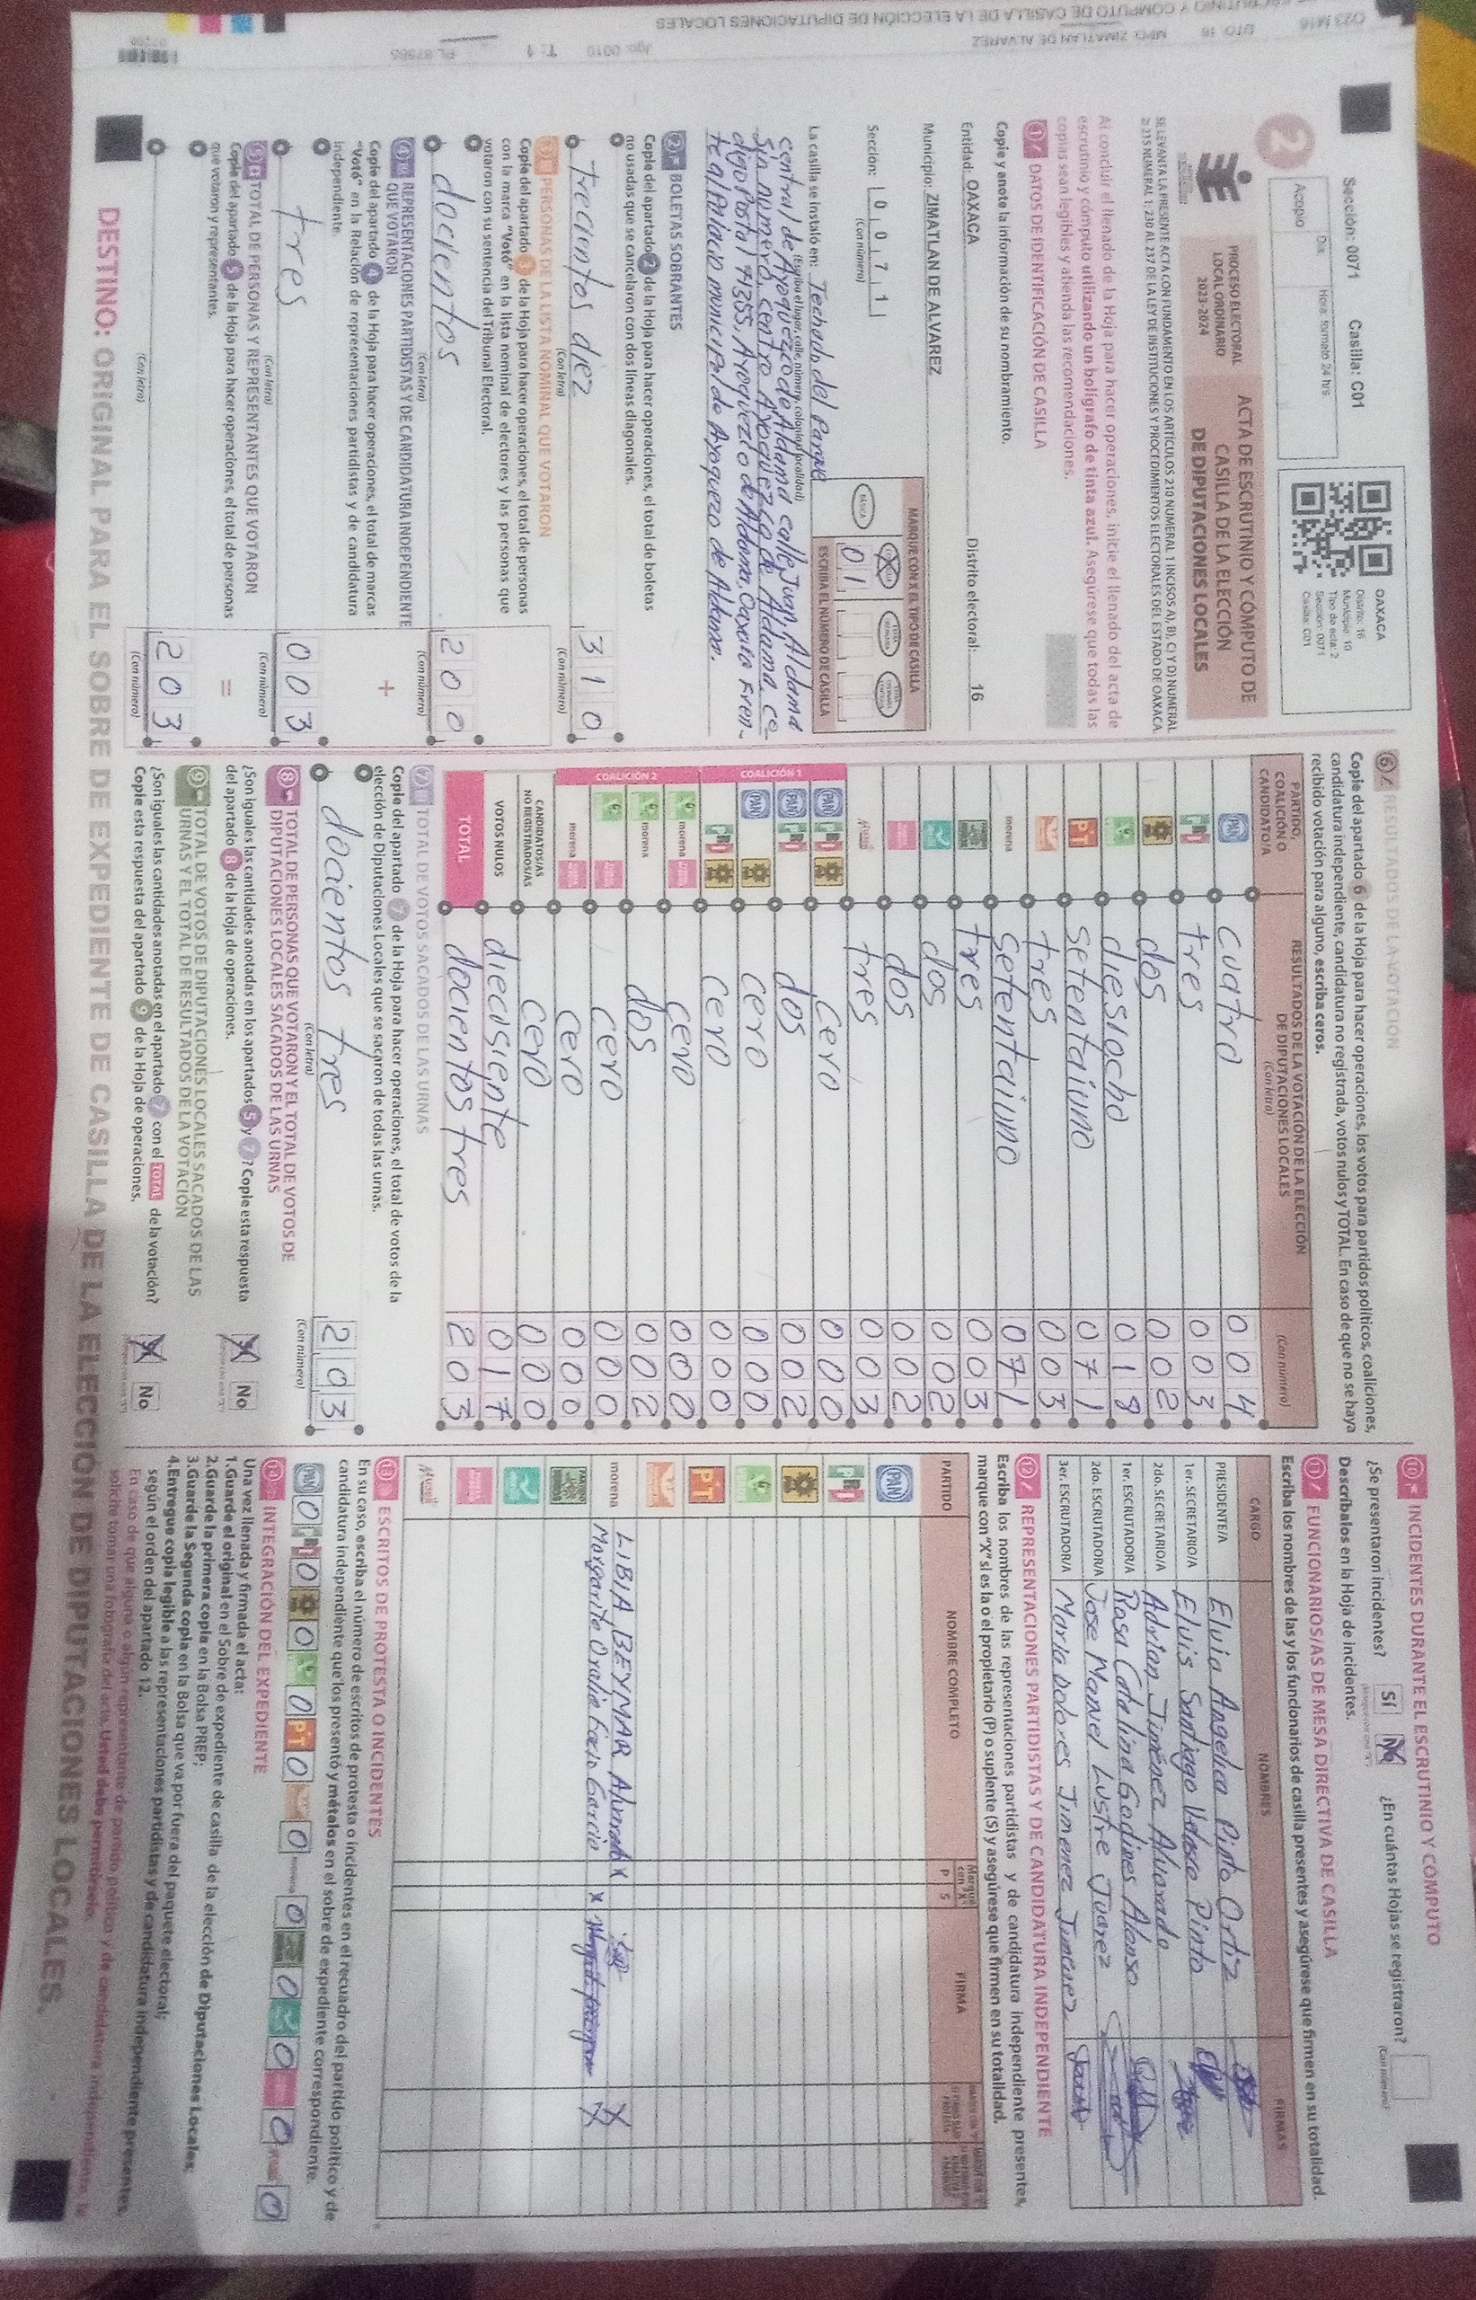 Sección: 0071 Casilla: C01
Día: Hora: formato 24 hrs
Acopio
OAXACA
Distrito: 16
Municipio: 10
Tipo de acta: 2
Sección: 0071
Casilla: C01
2
PROCESO ELECTORAL
LOCAL ORDINARIO
2023-2024
ACTA DE ESCRUTINIO Y CÓMPUTO DE
CASILLA DE LA ELECCIÓN
DE DIPUTACIONES LOCALES
SE LEVANTA LA PRESENTE ACTA CON FUNDAMENTO EN LOS ARTÍCULOS 210 NUMERAL 1 INCISOS A), B), C) Y D) NUMERAL
2; 215 NUMERAL 1; 230 AL 237 DE LA LEY DE INSTITUCIONES Y PROCEDIMIENTOS ELECTORALES DEL ESTADO DE OAXACA
Al concluir el llenado de la Hoja para hacer operaciones, inicie el llenado del acta de
escrutinio y cómputo utilizando un bolígrafo de tinta azul. Asegúrese que todas las
copias sean legibles y atienda las recomendaciones.
1 DATOS DE IDENTIFICACIÓN DE CASILLA
Copie y anote la información de su nombramiento.
Entidad: OAXACA Distrito electoral: 16
Municipio: ZIMATLAN DE ALVAREZ
Sección: 0071
(Con número)
MARQUE CON X EL TIPO DE CASILLA
BÁSICA
ESCRIBA EL NÚMERO DE CASILLA
01
La casilla se instaló en: Techado del Parque
(Escriba el lugar, calle, número, colonia o localidad)
central de Ayoquezco de Aldama calle Juan Aldama
sin número, centro Ayoquezco de Aldama. co-
digo Postal 71355, Ayoquezco de Aldama, Oaxaca Fren-
te al Palacio municipal de Ayoquezo de Aldama.
2 BOLETAS SOBRANTES
Copie del apartado 2 de la Hoja para hacer operaciones, el total de boletas
no usadas que se cancelaron con dos líneas diagonales.
trecientos diez 310
(Con letra) (Con número)
3 PERSONAS DE LA LISTA NOMINAL QUE VOTARON
Copie del apartado 3 de la Hoja para hacer operaciones, el total de personas
con la marca "Votó" en la lista nominal de electores y las personas que
votaron con su sentencia del Tribunal Electoral.
docientos 200
(Con letra) (Con número)
4 REPRESENTACIONES PARTIDISTAS Y DE CANDIDATURA INDEPENDIENTE
QUE VOTARON
Copie del apartado 4 de la Hoja para hacer operaciones, el total de marcas
"Votó" en la Relación de representaciones partidistas y de candidatura
independiente.
+
tres 003
(Con letra) (Con número)
5 TOTAL DE PERSONAS Y REPRESENTANTES QUE VOTARON
Copie del apartado 5 de la Hoja para hacer operaciones, el total de personas
que votaron y representantes.
=
203
(Con letra) (Con número)
6 RESULTADOS DE LA VOTACIÓN
Copie del apartado 6 de la Hoja para hacer operaciones, los votos para partidos políticos, coaliciones,
candidatura independiente, candidatura no registrada, votos nulos y TOTAL. En caso de que no se haya
recibido votación para alguno, escriba ceros.
PARTIDO, COALICIÓN O CANDIDATO/A
RESULTADOS DE LA VOTACIÓN DE LA ELECCIÓN DE DIPUTACIONES LOCALES
(Con letra) (Con número)
PAN cuatro 004
PRI tres 003
dos 002
diesiocho 018
PT setentaiuno 071
tres 003
morena setentaiuno 071
tres 003
dos 002
dos 002
tres 003
COALICIÓN 1
PAN PRI cero 000
PAN PRI dos 002
PAN cero 000
PRI cero 000
COALICIÓN 2
morena cero 000
morena dos 002
cero 000
morena cero 000
CANDIDATOS/AS NO REGISTRADOS/AS cero 000
VOTOS NULOS diecisiente 017
TOTAL docientos tres 203
7 TOTAL DE VOTOS SACADOS DE LAS URNAS
Copie del apartado 7 de la Hoja para hacer operaciones, el total de votos de la
elección de Diputaciones Locales que se sacaron de todas las urnas.
docientos tres 203
(Con letra) (Con número)
8 TOTAL DE PERSONAS QUE VOTARON Y EL TOTAL DE VOTOS DE
DIPUTACIONES LOCALES SACADOS DE LAS URNAS
¿Son iguales las cantidades anotadas en los apartados 5 y 7? Copie esta respuesta
del apartado 8 de la Hoja de operaciones.
No
9 TOTAL DE VOTOS DE DIPUTACIONES LOCALES SACADOS DE LAS
URNAS Y EL TOTAL DE RESULTADOS DE LA VOTACIÓN
¿Son iguales las cantidades anotadas en el apartado 7 con el TOTAL de la votación?
Copie esta respuesta del apartado 9 de la Hoja de operaciones.
No
10 INCIDENTES DURANTE EL ESCRUTINIO Y CÓMPUTO
¿Se presentaron incidentes? Sí No ¿En cuántas Hojas se registraron?
(Con número)
Descríbalos en la Hoja de incidentes.
11 FUNCIONARIOS/AS DE MESA DIRECTIVA DE CASILLA
Escriba los nombres de las y los funcionarios de casilla presentes y asegúrese que firmen en su totalidad.
CARGO NOMBRES FIRMAS
PRESIDENTE/A Elvia Angelica Pinto Ortiz
1er. SECRETARIO/A Eluis Santiago Velasco Pinto
2do. SECRETARIO/A Adrian Jiménez Alvarado
1er. ESCRUTADOR/A Rosa Catalina Godines Alonso
2do. ESCRUTADOR/A Jose Manuel Lustre Juarez
3er. ESCRUTADOR/A Maria dolores Jimenez Jimenez
12 REPRESENTACIONES PARTIDISTAS Y DE CANDIDATURA INDEPENDIENTE
Escriba los nombres de las representaciones partidistas y de candidatura independiente presentes,
marque con "X" si es la o el propietario (P) o suplente (S) y asegúrese que firmen en su totalidad.
PARTIDO NOMBRE COMPLETO Marque con "X" P S FIRMA
PAN
PRI
PT
morena LIBIA BEYMAR X X
Margarita Oralia García X X
13 ESCRITOS DE PROTESTA O INCIDENTES
En su caso, escriba el número de escritos de protesta o incidentes en el recuadro del partido político y de
candidatura independiente que los presentó y métalos en el sobre de expediente de casilla correspondiente.
PAN 0 PRI 0 0 0 PT 0 0 morena 0 0 0 0 0
14 INTEGRACIÓN DEL EXPEDIENTE
Una vez llenada y firmada el acta:
1.Guarde el original en el Sobre de expediente de casilla de la elección de Diputaciones Locales;
2.Guarde la primera copia en la Bolsa PREP;
3.Guarde la Segunda copia en la Bolsa que va por fuera del paquete electoral;
4.Entregue copia legible a las representaciones partidistas y de candidatura independiente presentes,
según el orden del apartado 12.
En caso de que alguna o algún representante de partido político y de candidatura independiente le
solicite tomar una fotografía del acta, Usted debe permitírselo.
DESTINO: ORIGINAL PARA EL SOBRE DE EXPEDIENTE DE CASILLA DE LA ELECCIÓN DE DIPUTACIONES LOCALES.
023 M16 DTO 16 MPO. ZIMATLAN DE ALVAREZ
ESCRUTINIO Y COMPUTO DE CASILLA DE LA ELECCIÓN DE DIPUTACIONES LOCALES